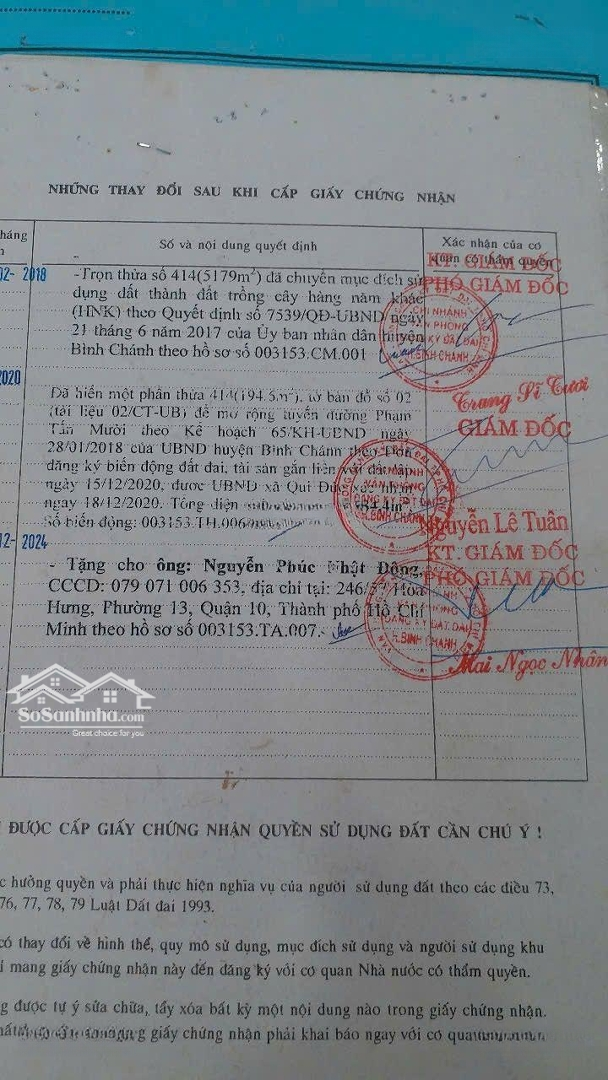 NHỮNG THAY ĐỔI SAU KHI CẤP GIẤY CHỨNG NHẬN
háng
Số và nội dung quyết định
Xác nhận của cơ
quan có thẩm quyền
02- 2018
-Trọn thửa số 414(5179m²) đã chuyển mục đích sử
dụng đất thành đất trồng cây hàng năm khác
(HNK) theo Quyết định số 7539/QĐ-UBND ngày
21 tháng 6 năm 2017 của Ủy ban nhân dân huyện
Bình Chánh theo hồ sơ số 003153.CM.001
KT. GIÁM ĐỐC
PHÓ GIÁM ĐỐC
CHI NHÁNH
VĂN PHÒNG
ĐĂNG KÝ ĐẤT ĐAI
H.BÌNH CHÁNH
Trang Sĩ Tươi
2020
Đã hiến một phần thửa 414(194.5m²), tờ bản đồ số 02
(tài liệu 02/CT-UB) để mở rộng tuyến đường Phạm
Tấn Mười theo Kế hoạch 65/KH-UBND ngày
28/01/2018 của UBND huyện Bình Chánh theo Đơn
đăng ký biến động đất đai, tài sản gắn liền với đất lập
ngày 15/12/2020, được UBND xã Qui Đức xác nhận
ngày 18/12/2020. Tổng diện
Số biến động: 003153.TH.006
GIÁM ĐỐC
CHI NHÁNH
VĂN PHÒNG
ĐĂNG KÝ ĐẤT ĐAI
H.BÌNH CHÁNH
Nguyễn Lê Tuân
12- 2024
- Tặng cho ông: Nguyễn Phúc Nhật Đông,
CCCD: 079 071 006 353, địa chỉ tại: 246/ Hòa
Hưng, Phường 13, Quận 10, Thành phố Hồ Chí
Minh theo hồ sơ số 003153.TA.007.
KT. GIÁM ĐỐC
PHÓ GIÁM ĐỐC
ĐĂNG KÝ ĐẤT ĐAI
H.BÌNH CHÁNH
Mai Ngọc Nhân
SoSanhnha.com
Great choice for you
ĐƯỢC CẤP GIẤY CHỨNG NHẬN QUYỀN SỬ DỤNG ĐẤT CẦN CHÚ Ý !
c hưởng quyền và phải thực hiện nghĩa vụ của người sử dụng đất theo các điều 73,
76, 77, 78, 79 Luật Đất đai 1993.
có thay đổi về hình thể, quy mô sử dụng, mục đích sử dụng và người sử dụng khu
ỉ mang giấy chứng nhận này đến đăng ký với cơ quan Nhà nước có thẩm quyền.
g được tự ý sửa chữa, tẩy xóa bất kỳ một nội dung nào trong giấy chứng nhận.
giấy chứng nhận phải khai báo ngay với cơ quan